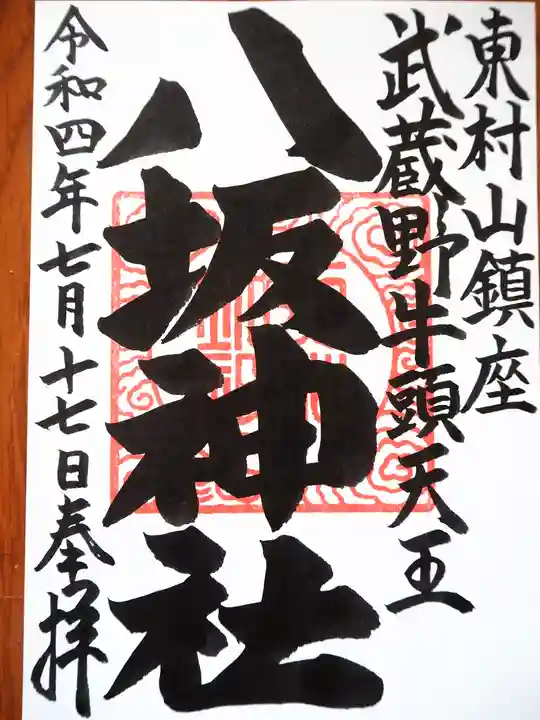 東村山鎮座
武蔵野牛頭天王
八坂神社
令和四年七月十七日奉拝